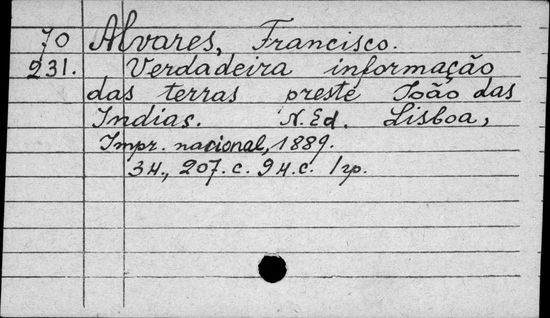 70 Alvares, Francisco.
231. Verdadeira informação
das terras preste João das
Indias. N. Ed. Lisboa,
Impr. nacional, 1889.
3н., 207.c. 9н.c. 1